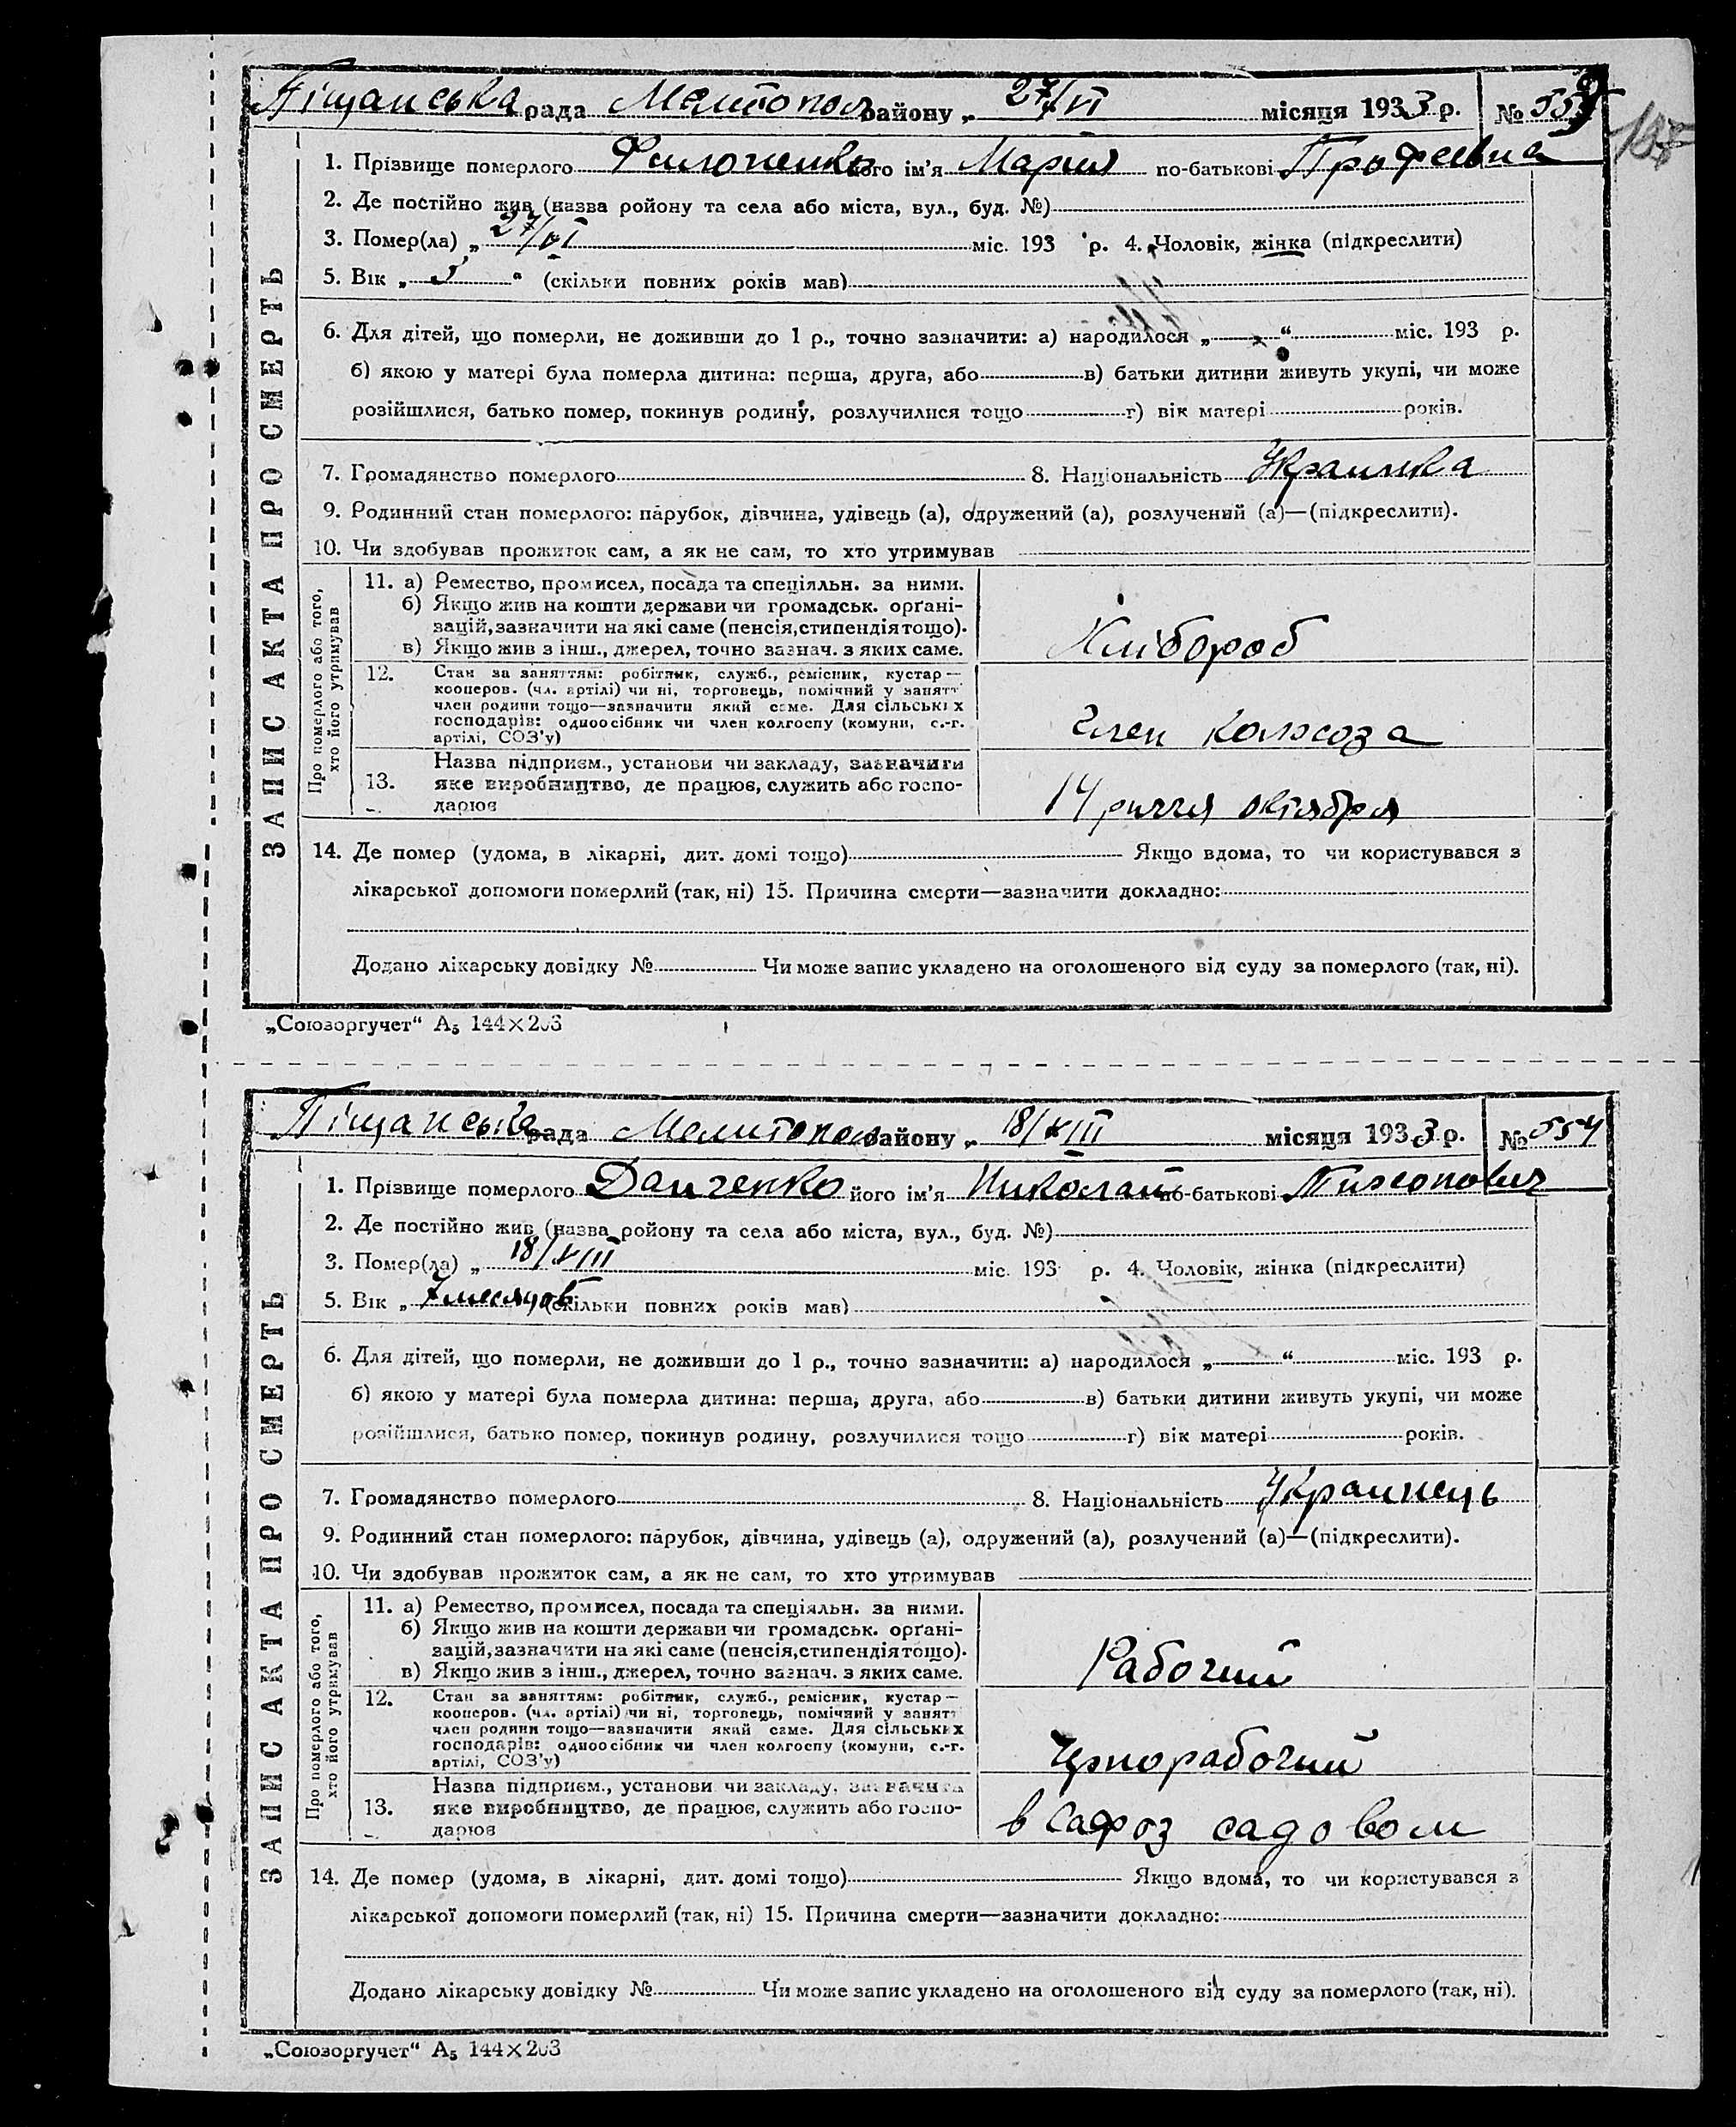 Піщанська рада Мелитопол району „ 27/VI місяця 1933 р. № 553
1. Прізвище померлого Филоненко його ім'я Мария по-батькові Профеевна
2. Де постійно жив (назва ройону та села або міста, вул., буд. №)
3. Помер(ла) „ 27/VI міс. 193 р. 4. Чоловік, жінка (підкреслити)
5. Вік „ 5 “ (скільки повних років мав)
6. Для дітей, що померли, не доживши до 1 р., точно зазначити: а) народилося „ “ міс. 193 р.
б) якою у матері була померла дитина: перша, друга, або в) батьки дитини живуть укупі, чи може
розійшлися, батько помер, покинув родину, розлучилися тощо г) вік матері років.
7. Громадянство померлого 8. Національність Украинка
9. Родинний стан померлого: парубок, дівчина, удівець (а), одружений (а), розлучений (а)—(підкреслити).
10. Чи здобував прожиток сам, а як не сам, то хто утримував
ЗАПИС АКТА ПРО СМЕРТЬ
Про померлого або того, хто його утримував
11. а) Ремество, промисел, посада та спеціяльн. за ними.
б) Якщо жив на кошти держави чи громадськ. орґані-
зацій, зазначити на які саме (пенсія, стипендія тощо).
в) Якщо жив з інш., джерел, точно зазнач. з яких саме.
Хлібороб
12. Стан за заняттям: робітник, служб., ремісник, кустар—
кооперов. (чл. артілі) чи ні, торговець, помічний у занятт
член родини тощо—зазначити який саме. Для сільських
господарів: одноосібник чи член колгоспу (комуни, с.-г.
артілі, СОЗ'у)
Член колхоза
13. Назва підприєм., установи чи закладу, зазначити
яке виробництво, де працює, служить або госпо-
дарює
14 риччя октября
14. Де помер (удома, в лікарні, дит. домі тощо) Якщо вдома, то чи користувався з
лікарської допомоги померлий (так, ні) 15. Причина смерти—зазначити докладно:
Додано лікарську довідку № Чи може запис укладено на оголошеного від суду за померлого (так, ні).
„Союзоргучет“ А5 144×203
Піщанська рада Мелитопол району „ 18/VIII місяця 1933 р. № 554
1. Прізвище померлого Данченко його ім'я Николай по-батькові Тихонович
2. Де постійно жив (назва ройону та села або міста, вул., буд. №)
3. Помер(ла) „ 18/VIII міс. 193 р. 4. Чоловік, жінка (підкреслити)
5. Вік „ 7 месяцов (скільки повних років мав)
6. Для дітей, що померли, не доживши до 1 р., точно зазначити: а) народилося „ “ міс. 193 р.
б) якою у матері була померла дитина: перша, друга, або в) батьки дитини живуть укупі, чи може
розійшлися, батько помер, покинув родину, розлучилися тощо г) вік матері років.
7. Громадянство померлого 8. Національність Украинець
9. Родинний стан померлого: парубок, дівчина, удівець (а), одружений (а), розлучений (а)—(підкреслити).
10. Чи здобував прожиток сам, а як не сам, то хто утримував
ЗАПИС АКТА ПРО СМЕРТЬ
Про померлого або того, хто його утримував
11. а) Ремество, промисел, посада та спеціяльн. за ними.
б) Якщо жив на кошти держави чи громадськ. орґані-
зацій, зазначити на які саме (пенсія, стипендія тощо).
в) Якщо жив з інш., джерел, точно зазнач. з яких саме.
Рабочий
12. Стан за заняттям: робітник, служб., ремісник, кустар—
кооперов. (чл. артілі) чи ні, торговець, помічний у занятт
член родини тощо—зазначити який саме. Для сільських
господарів: одноосібник чи член колгоспу (комуни, с.-г.
артілі, СОЗ'у)
Чорнорабочий
13. Назва підприєм., установи чи закладу, зазначити
яке виробництво, де працює, служить або госпо-
дарює
в садовом
14. Де помер (удома, в лікарні, дит. домі тощо) Якщо вдома, то чи користувався з
лікарської допомоги померлий (так, ні) 15. Причина смерти—зазначити докладно:
Додано лікарську довідку № Чи може запис укладено на оголошеного від суду за померлого (так, ні).
„Союзоргучет“ А5 144×203